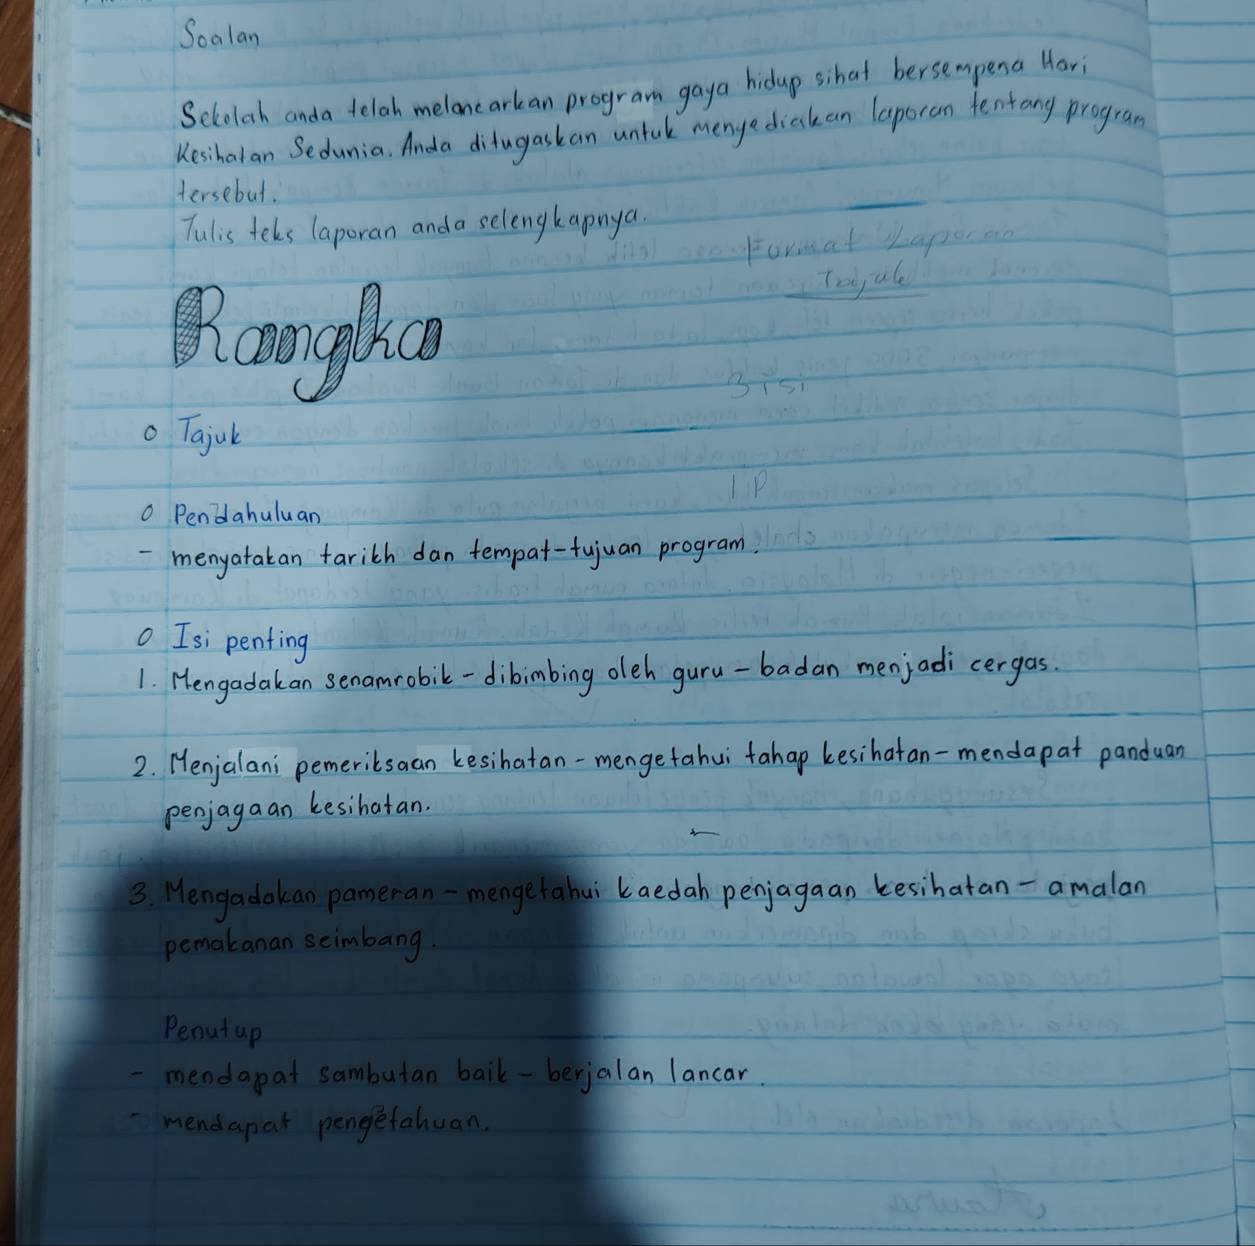 Soalan
Sekolah anda telah melancarkan program gaya hidup sihat bersempena Hari
Kesihatan Sedunia. Anda ditugaskan untuk menyediakan laporan tentang program
tersebut.
Tulis teks laporan anda selengkapnya.
Format Laporan
Tajuk
Rangka
3 isi
o Tajuk
1 P
o Pendahuluan
- menyatakan tarikh dan tempat-tujuan program.
o Isi penting
1. Mengadakan senamrobik - dibimbing oleh guru - badan menjadi cergas.
2. Menjalani pemeriksaan kesihatan - mengetahui tahap kesihatan - mendapat panduan
penjagaan kesihatan.
3. Mengadakan pameran - mengetahui kaedah penjagaan kesihatan - amalan
pemakanan seimbang.
Penutup
- mendapat sambutan baik - berjalan lancar.
- mendapat pengetahuan.